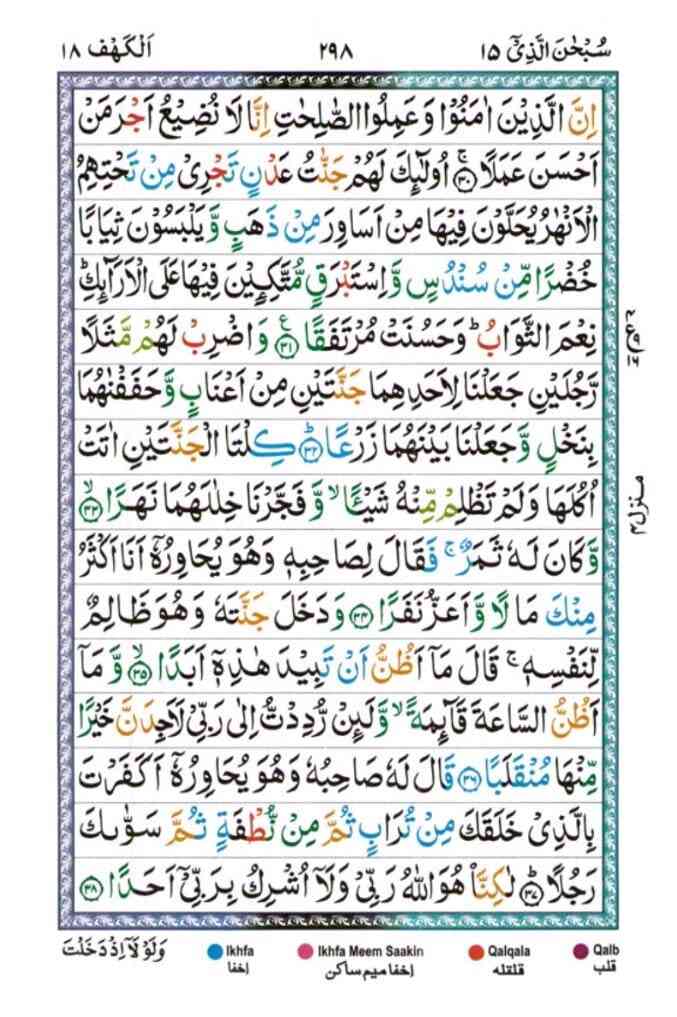 سُبْحٰنَ الَّذِیْۤ ١٥ ٢٩٨ اَلْكَهْف ١٨
اِنَّ الَّذِیْنَ اٰمَنُوْا وَ عَمِلُوا الصّٰلِحٰتِ اِنَّا لَا نُضِیْعُ اَجْرَ مَنْ
اَحْسَنَ عَمَلًا ۚ ﴿۳۰﴾ اُولٰٓئِكَ لَهُمْ جَنّٰتُ عَدْنٍ تَجْرِیْ مِنْ تَحْتِهِمُ
الْاَنْهٰرُ یُحَلَّوْنَ فِیْهَا مِنْ اَسَاوِرَ مِنْ ذَهَبٍ وَّ یَلْبَسُوْنَ ثِیَابًا
خُضْرًا مِّنْ سُنْدُسٍ وَّ اِسْتَبْرَقٍ مُّتَّكِـِٕیْنَ فِیْهَا عَلَی الْاَرَآىِٕكِ ؕ
نِعْمَ الثَّوَابُ ؕ وَ حَسُنَتْ مُرْتَفَقًا ﴿۳۱﴾ ع وَ اضْرِبْ لَهُمْ مَّثَلًا
رَّجُلَیْنِ جَعَلْنَا لِاَحَدِهِمَا جَنَّتَیْنِ مِنْ اَعْنَابٍ وَّ حَفَفْنٰهُمَا
بِنَخْلٍ وَّ جَعَلْنَا بَیْنَهُمَا زَرْعًا ؕ ﴿۳۲﴾ كِلْتَا الْجَنَّتَیْنِ اٰتَتْ
اُكُلَهَا وَ لَمْ تَظْلِمْ مِّنْهُ شَیْـًٔا ۙ وَّ فَجَّرْنَا خِلٰلَهُمَا نَهَرًا ۙ ﴿۳۳﴾
وَّ كَانَ لَهٗ ثَمَرٌ ۚ فَقَالَ لِصَاحِبِهٖ وَ هُوَ یُحَاوِرُهٗۤ اَنَا اَكْثَرُ
مِنْكَ مَا لًا وَّ اَعَزُّ نَفَرًا ﴿۳۴﴾ وَ دَخَلَ جَنَّتَهٗ وَ هُوَ ظَالِمٌ
لِّنَفْسِهٖ ۚ قَالَ مَاۤ اَظُنُّ اَنْ تَبِیْدَ هٰذِهٖۤ اَبَدًا ۙ ﴿۳۵﴾ وَّ مَاۤ
اَظُنُّ السَّاعَةَ قَآىِٕمَةً ۙ وَّ لَىِٕنْ رُّدِدْتُّ اِلٰی رَبِّیْ لَاَجِدَنَّ خَیْرًا
مِّنْهَا مُنْقَلَبًا ﴿۳۶﴾ قَالَ لَهٗ صَاحِبُهٗ وَ هُوَ یُحَاوِرُهٗۤ اَكَفَرْتَ
بِالَّذِیْ خَلَقَكَ مِنْ تُرَابٍ ثُمَّ مِنْ نُّطْفَةٍ ثُمَّ سَوّٰىكَ
رَجُلًا ؕ ﴿۳۷﴾ لٰكِنَّاۡ هُوَ اللّٰهُ رَبِّیْ وَ لَاۤ اُشْرِكُ بِرَبِّیْۤ اَحَدًا ﴿۳۸﴾
منزل ۴
Qalb قلب
Qalqala قلقله
Ikhfa Meem Saakin اخفا میم ساکن
Ikhfa اخفا
وَلَوْ لَاۤ اِذْ دَخَلْتَ